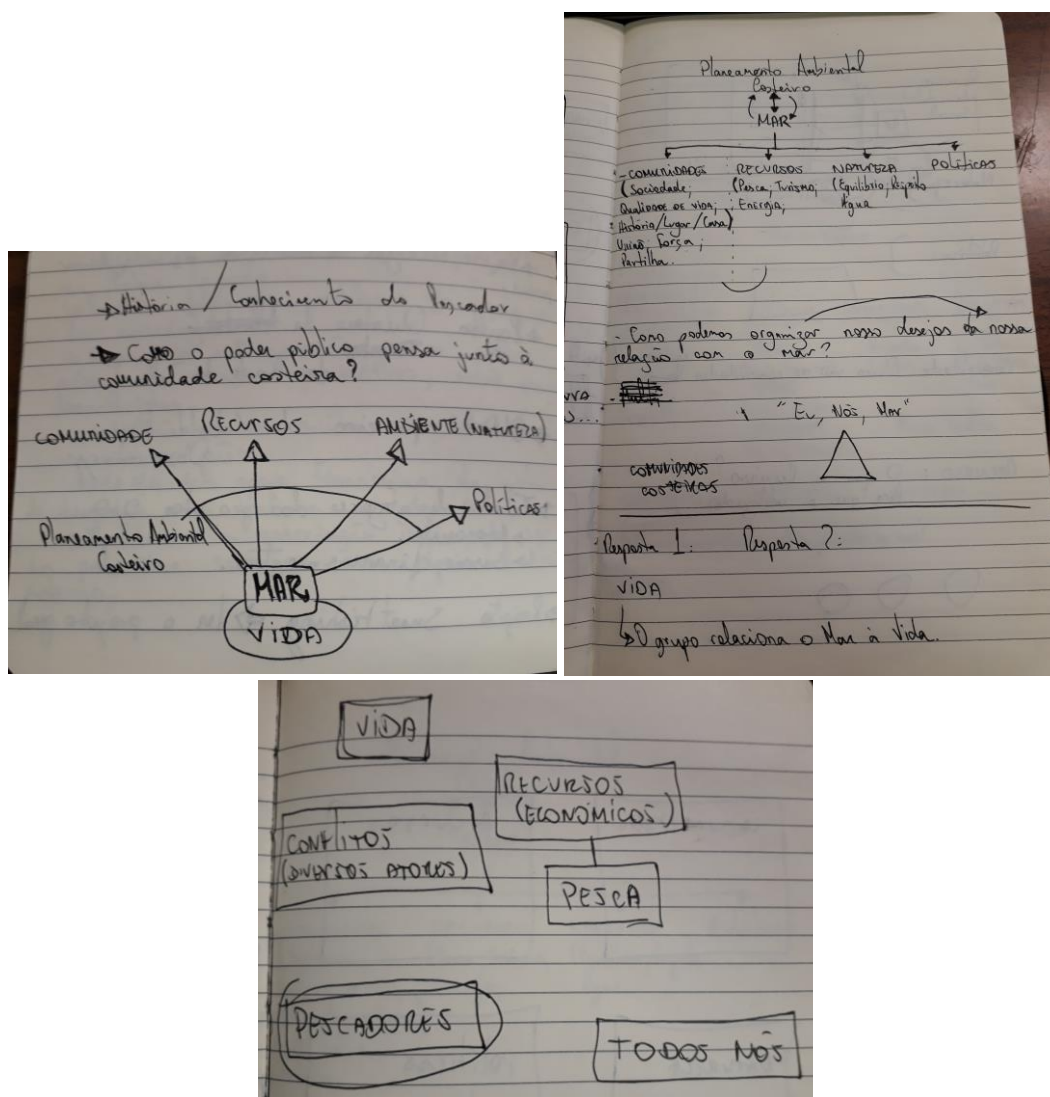 → História / Conhecimento do Pescador
→ Como o poder público pensa junto à
comunidade costeira?
COMUNIDADE
RECURSOS
AMBIENTE (NATUREZA)
Políticas
Planeamento Ambiental
Costeiro
MAR
VIDA
Planeamento Ambiental
Costeiro
MAR
- COMUNIDADES
(Sociedade;
Qualidade de vida;
História/Lugar/Casa)
União; Força;
Partilha.
RECURSOS
(Pesca; Turismo;
Energia;
NATUREZA
(Equilíbrio; Respeito
Água
Políticas
- Como podemos organizar nosso desejos da nossa
relação com o mar?
"Eu, Nós, Mar"
COMUNIDADES
COSTEIRAS
Resposta 1: Resposta 2:
VIDA
↳ O grupo relaciona o Mar à Vida.
VIDA
RECURSOS
(ECONÓMICOS)
CONFLITOS
(DIVERSOS ATORES)
PESCA
PESCADORES
TODOS NÓS